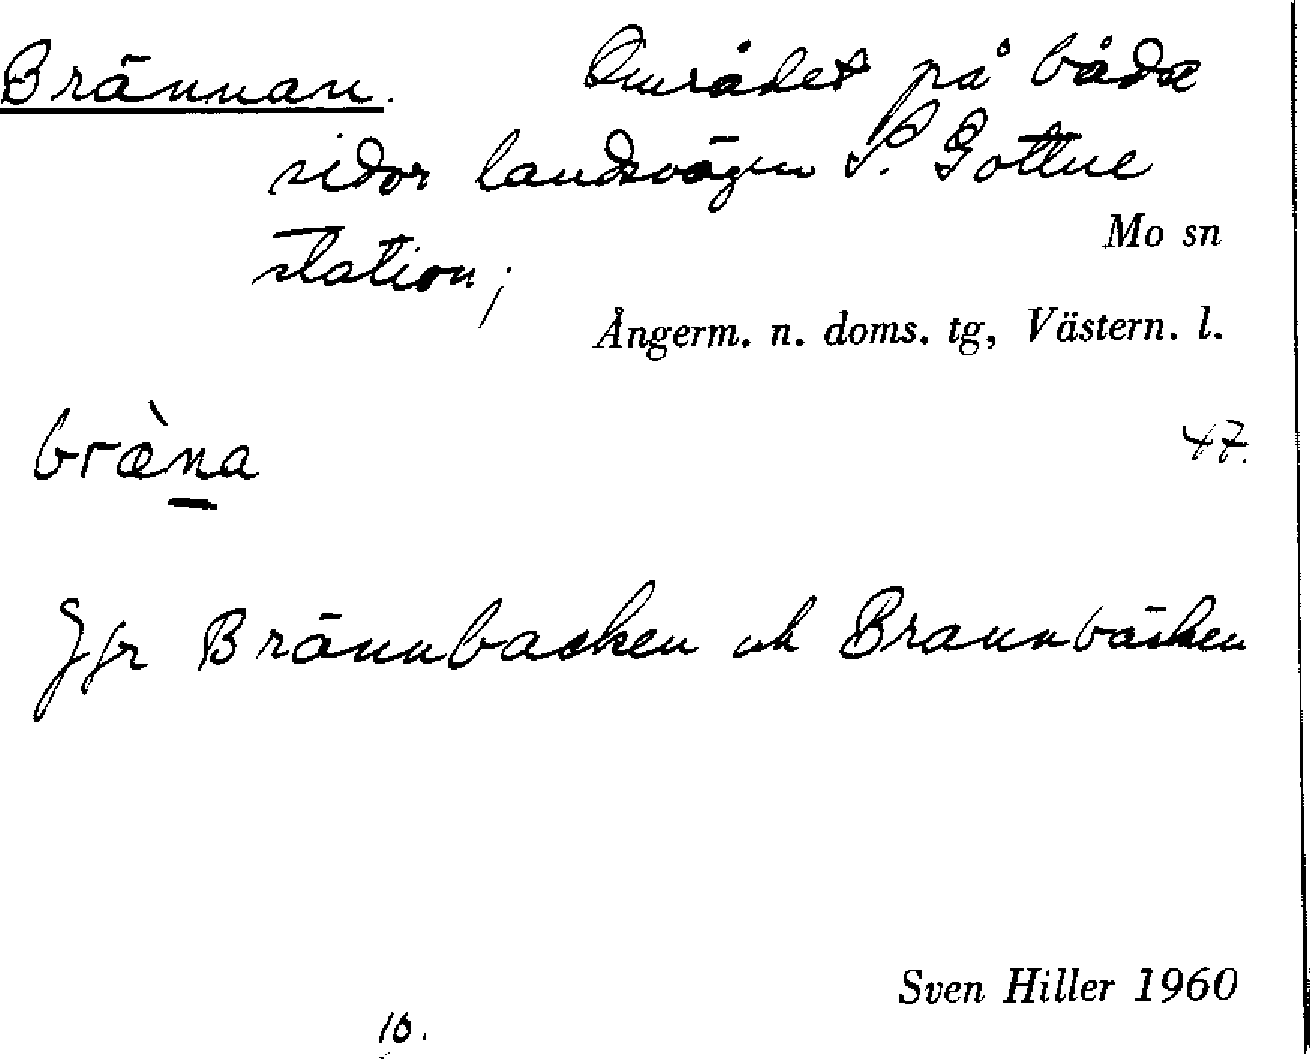 Brännan. Området på båda
sidor landsvägen S. Gottne
station;
Mo sn
Ångerm. n. doms. tg, Västern. l.
bræ̀na
47.
Jfr Brännbacken och Brannbäcken
Sven Hiller 1960
10.